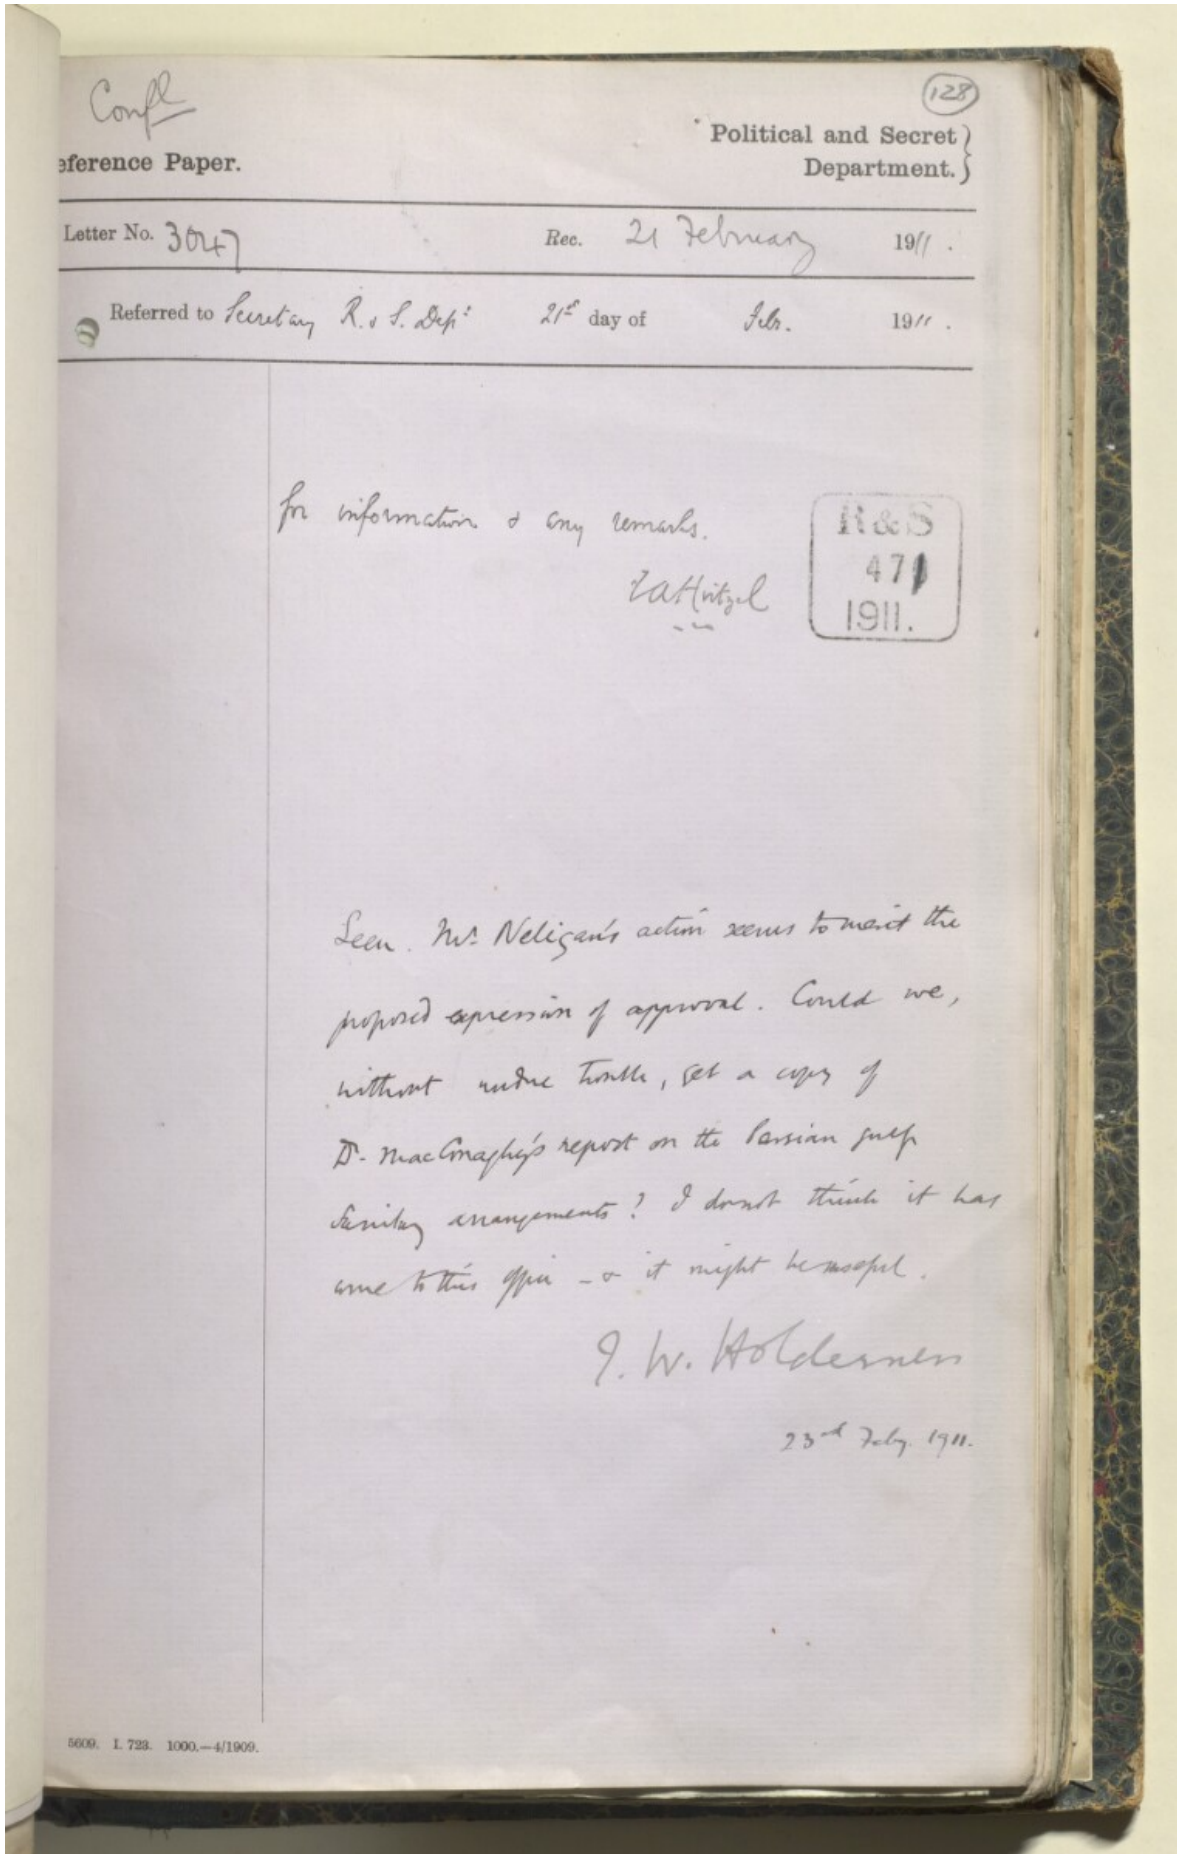 Confl
128
eference Paper.
Political and Secret
Department.
Letter No. 3047 Rec. 21 February 1911.
Referred to Secretary R. & S. Dept 21st day of Feb. 1911.
for information & any remarks.
FAHirtzel
R&S
471
1911.
Seen. Mr. Neligan's action seems to merit the
proposed expression of approval. Could we,
without undue trouble, get a copy of
Dr. MacConaghey's report on the Persian gulf
Sanitary arrangements? I do not think it has
come to this office - & it might be useful.
T. W. Holderness
23rd Feby. 1911.
5609. I. 723. 1000.—4/1909.